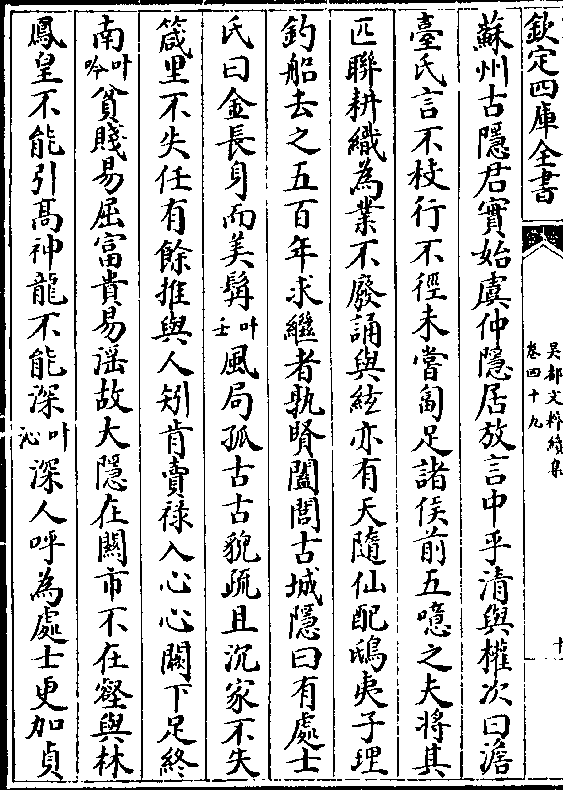 欽定四庫全書
吳都文粹續集
卷四十九
十
蘇州古隱君實始虞仲隱居放言中乎清與權次曰澹
臺氏言不枝行不徑未嘗匐足諸侯前五噫之夫將其
匹聯耕織為業不廢誦與絃亦有天隨仙配鴟夷子理
釣船去之五百年求繼者孰賢闔閭古城隱曰有處士
氏曰金長身而美髯叶壬風局孤古古貌疏且沉家不失
箴里不失任有餘推與人矧肯賣祿入心心闕下足終
南叶吟貧賤易屈富貴易滛故大隱在闤市不在壑與林
鳳皇不能引髙神龍不能深叶沁深人呼為處士更加貞